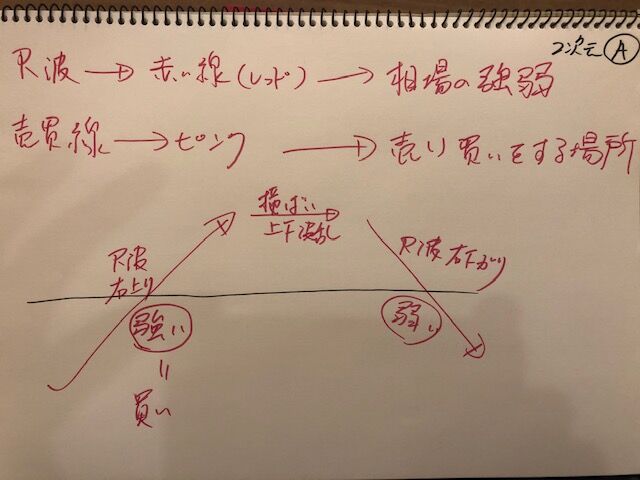 2次元 Ⓐ
R波 → 赤い線(レッド) → 相場の強弱
売買線 → ピンク → 売り買いをする場所
横ばい
上下波乱
R波
右上り
R波 右下がり
強い
弱い
=
買い